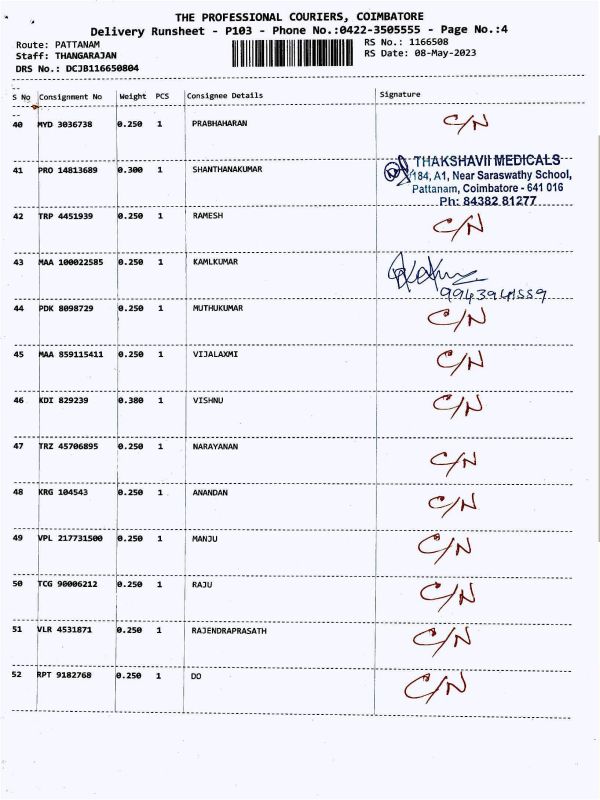 THE PROFESSIONAL COURIERS, COIMBATORE
Delivery Runsheet - P103 - Phone No.:0422-3505555 - Page No.:4
Route: PATTANAM RS No.: 1166508
Staff: THANGARAJAN RS Date: 08-May-2023
DRS No.: DCJB116650804
S No Consignment No Weight PCS Consignee Details Signature
40 MYD 3036738 0.250 1 PRABHAHARAN C/N
41 PRO 14813689 0.300 1 SHANTHANAKUMAR
THAKSHAVII MEDICALS
184, A1, Near Saraswathy School,
Pattanam, Coimbatore - 641 016
Ph: 84382 81277
42 TRP 4451939 0.250 1 RAMESH C/N
43 MAA 100022585 0.250 1 KAMLKUMAR
44 PDK 8098729 0.250 1 MUTHUKUMAR C/N
45 MAA 859115411 0.250 1 VIJALAXMI C/N
46 KDI 829239 0.380 1 VISHNU C/N
47 TRZ 45706895 0.250 1 NARAYANAN C/N
48 KRG 104543 0.250 1 ANANDAN C/N
49 VPL 217731500 0.250 1 MANJU C/N
50 TCG 90006212 0.250 1 RAJU C/N
51 VLR 4531871 0.250 1 RAJENDRAPRASATH C/N
52 RPT 9182768 0.250 1 DO C/N